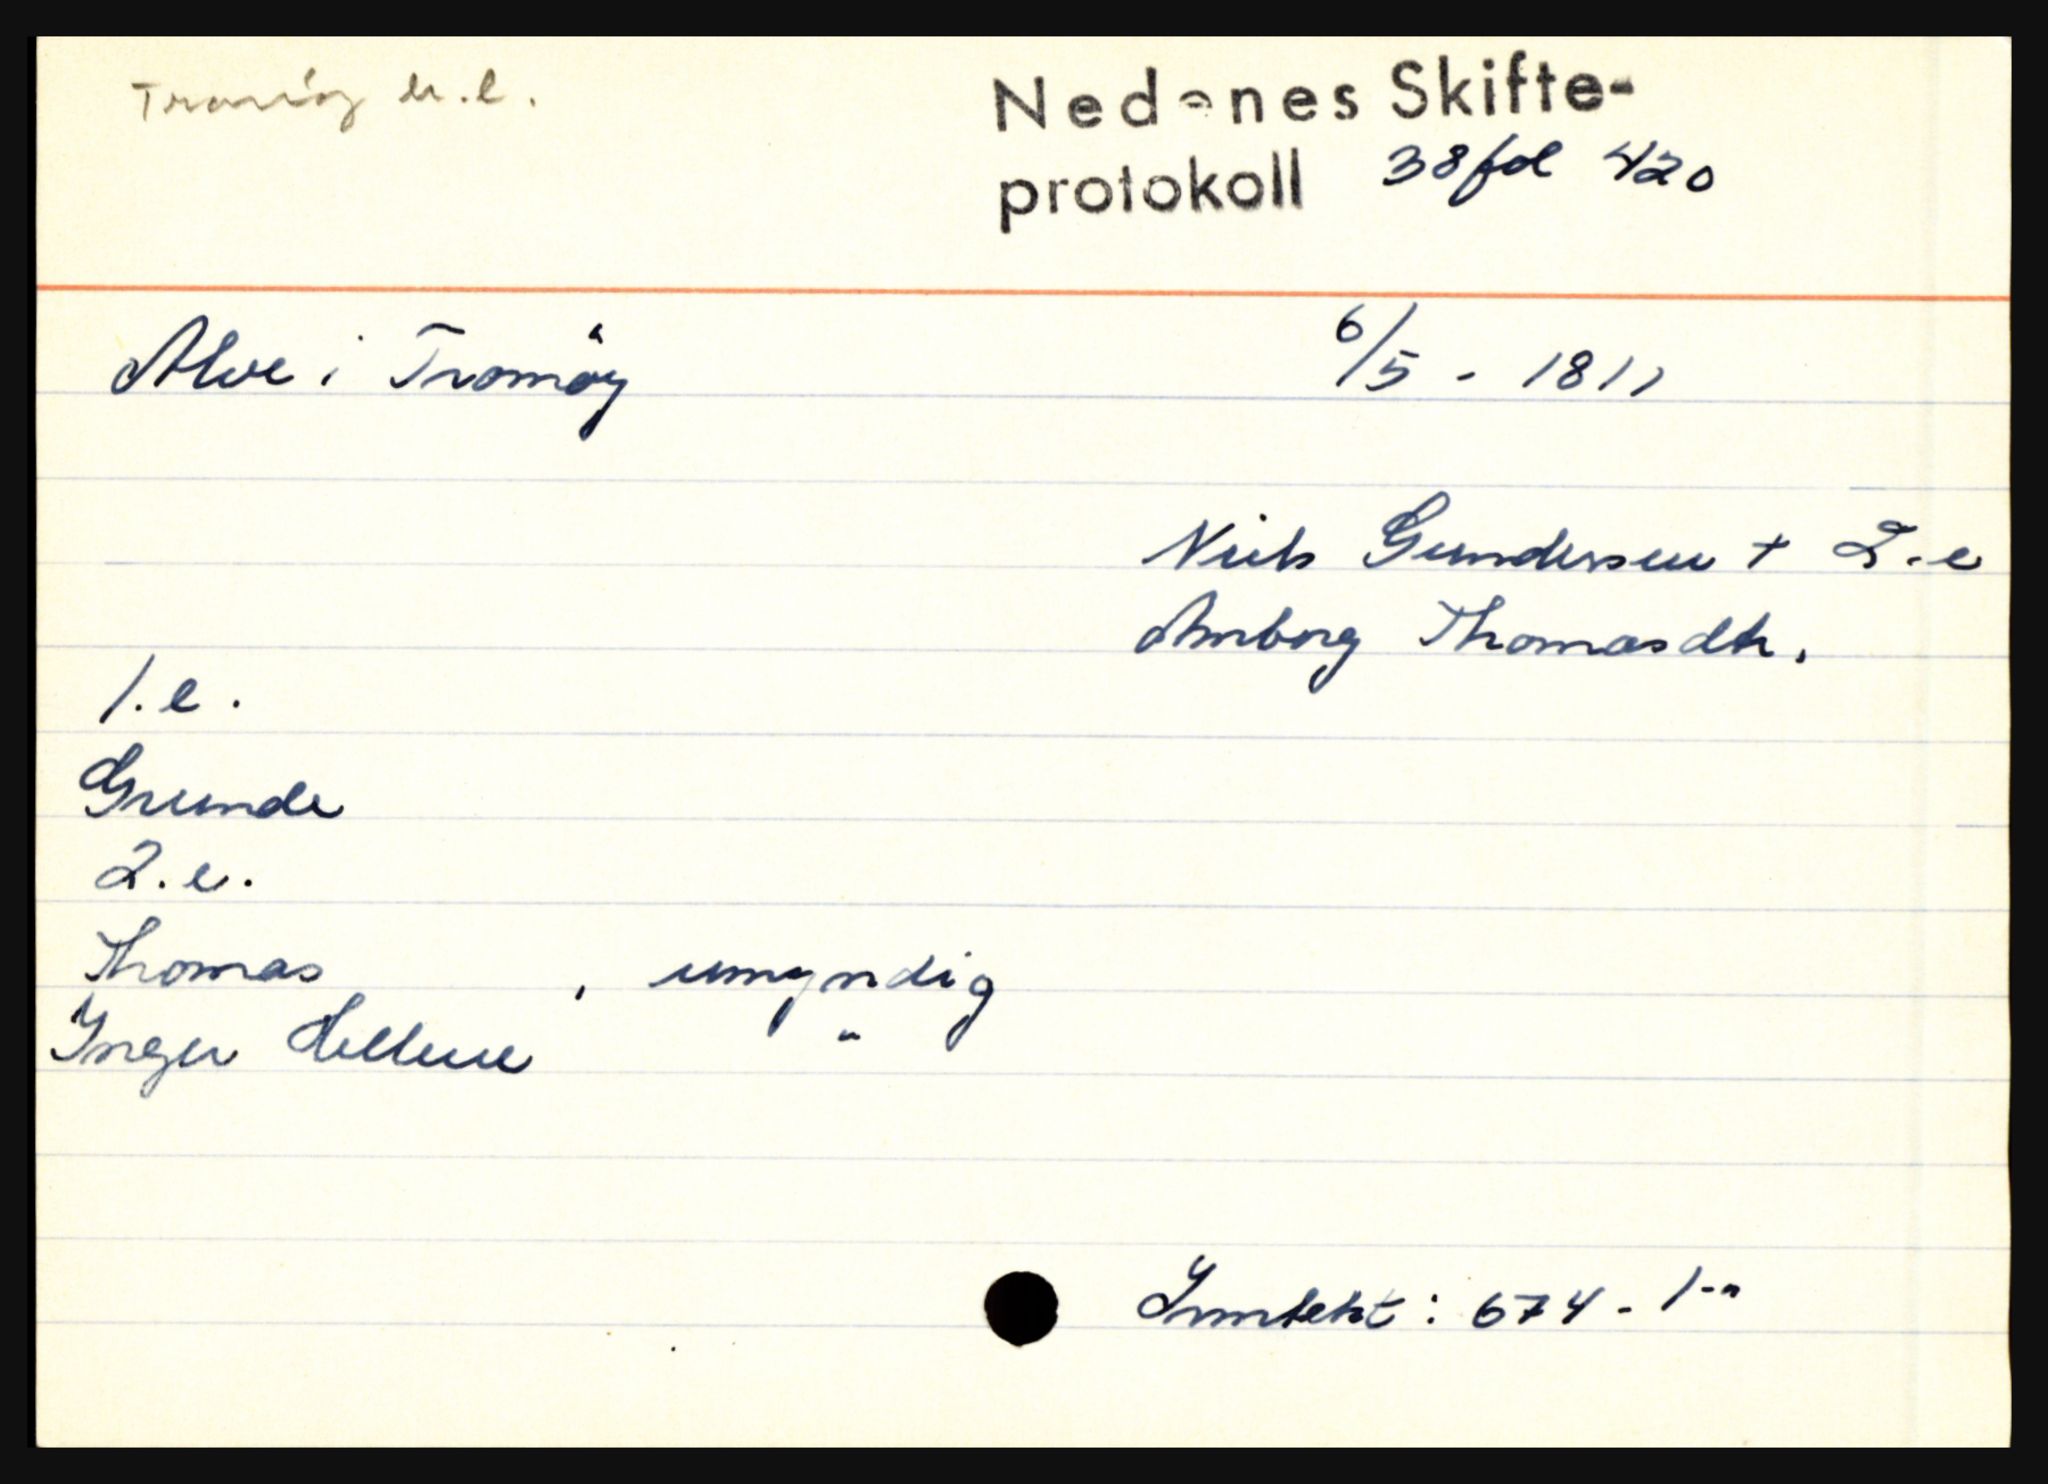 Tromöy
Nedenes Skifte-
protokoll 38 fol 420
Alve i Tromöy
6/5 - 1811
Niels Gundersen + 2.e
Anborg Thomasdtr.
1.e.
Grunde
2.e.
Thomas, umyndig
Inger Hellene "
Inntekt: 674-1-"